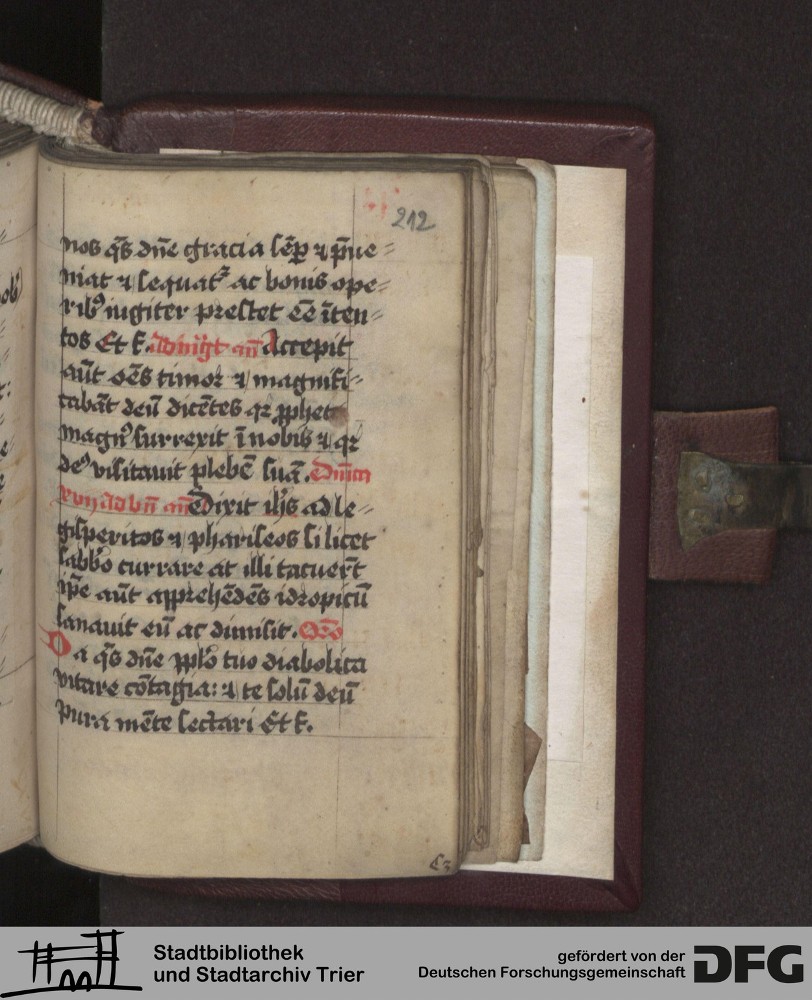 212
nos q̄s dn̄e gracia sēp ⁊ p̄ue⸗
niat ⁊ sequat᷑ ac bonis ope⸗
rib⁹ iugiter prestet eē īten⸗
tos Et f. Ad mḡt an̄ Accepit
aūt oēs timor ⁊ magnifi⸗
cabāt deū dicētes qꝛ ꝓphet
magn⁹ surrexit ī nobis ⁊ qꝛ
de⁹ visitauit plebē suā. Dn̄ica
xvij Ad bn̄ an̄ Dixit ih̄s ad le⸗
gisperitos ⁊ phariseos si licet
sabb̄o currare at illi tacuer̄t
ip̄e aūt apprehēdēs idropicū
sanauit eū ac dimisit. Or̄o
Da q̄s dn̄e pplō tuo diabolica
vitare cōtagia: ⁊ te solū deū
pura mēte sectari Et f.
Stadtbibliothek
und Stadtarchiv Trier
gefördert von der
Deutschen Forschungsgemeinschaft
DFG